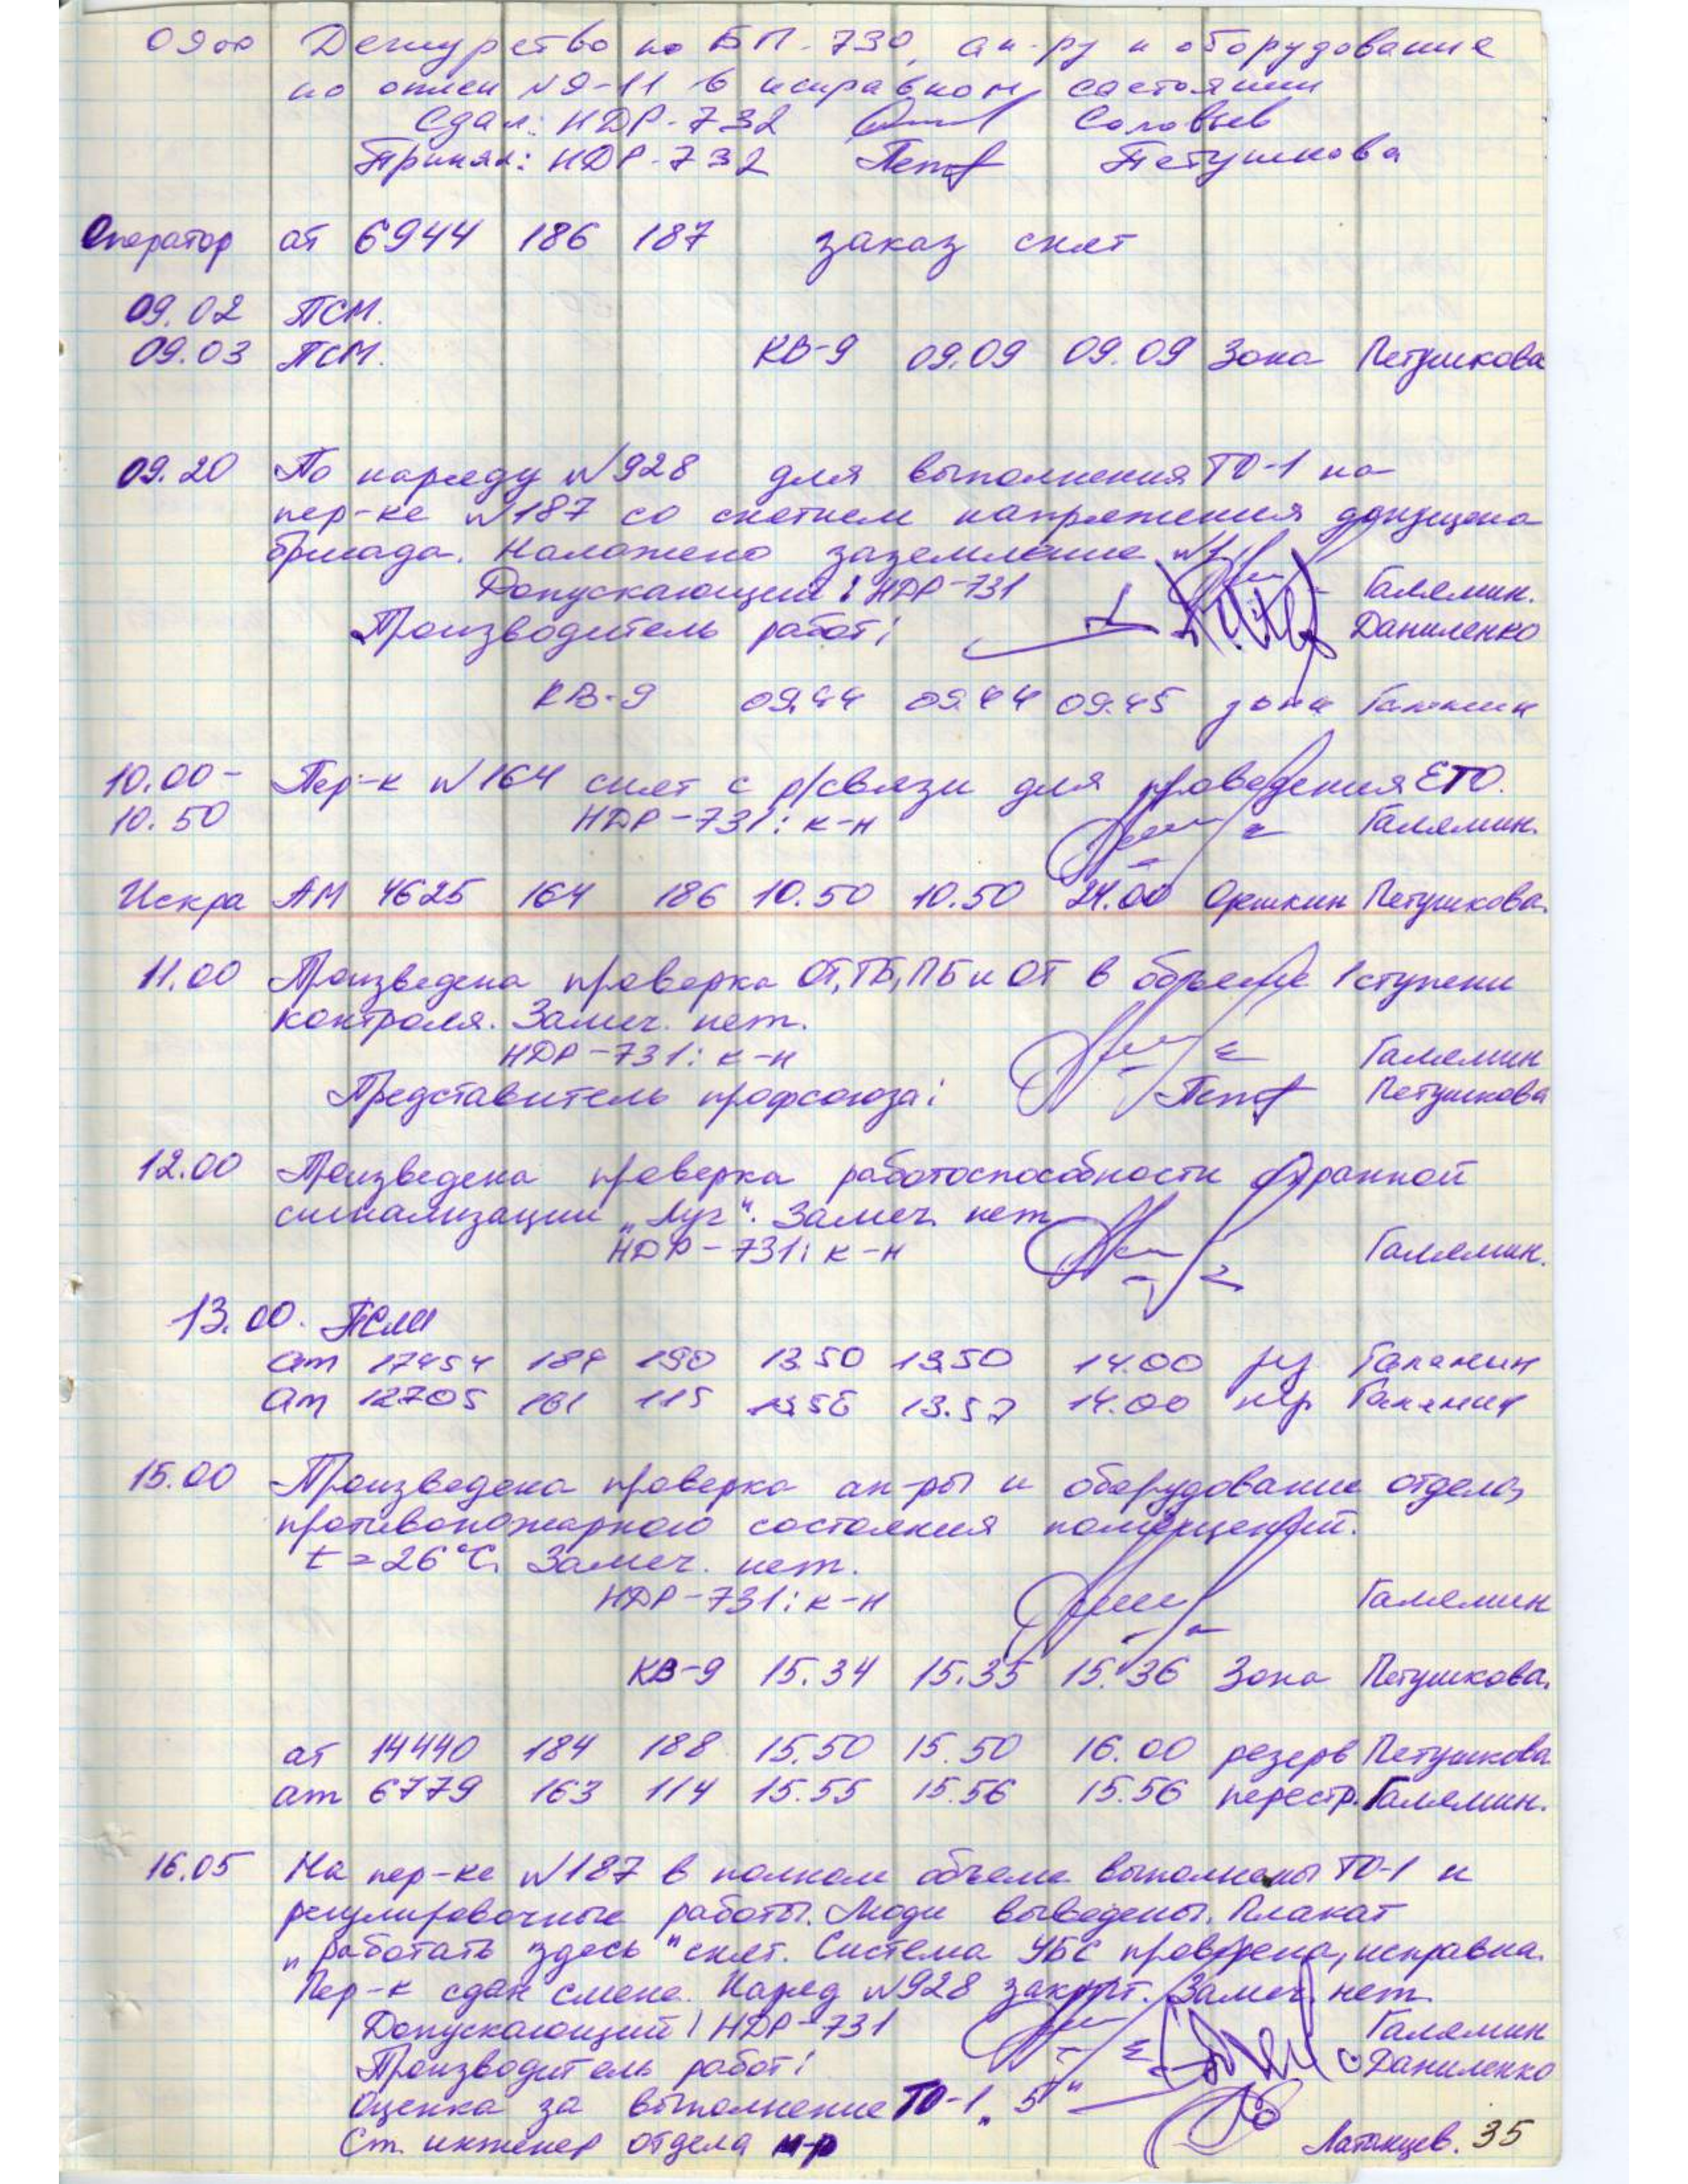 09 00 Дежурство по БП-730, ап-ру и оборудование
по описи №9-11 в исправном состоянии
Сдал: НДР-732 Соловьев
Принял: НДР-732 Петушкова
Оператор ат 6944 186 187 заказ снят
09.02 ПСМ.
09.03 ПСМ. КВ-9 09.09 09.09 Зона Петушкова
09.20 По наряду №928 для выполнения ТО-1 на
пер-ке №187 со снятием напряжения допущена
бригада. Наложено заземление №1.
Допускающий: НДР-731 Галямин.
Производитель работ: Даниленко
КВ-9 09.44 09.44 09.45 зона Галямин
10.00- Пер-к №164 снят с р/связи для проведения ЕТО.
10.50 НДР-731: к-н Галямин.
Искра АМ 4625 164 186 10.50 10.50 24.00 Орешкин Петушкова.
11.00 Произведена проверка ОТ, ТБ, ПБ и ОТ в объеме 1 ступени
контроля. Замеч. нет.
НДР-731: к-н Галямин
Представитель профсоюза: Петушкова
12.00 Произведена проверка работоспособности охранной
сигнализации „Луч". Замеч. нет
НДР-731: к-н Галямин.
13.00. ПСМ
ат 17454 189 190 13.50 13.50 14.00 рез Галямин
ат 12705 161 115 13.56 13.57 14.00 пер Галямин
15.00 Произведена проверка ап-ры и оборудование отдела,
противопожарного состояния помещений.
t = 26°С. Замеч. нет.
НДР-731: к-н Галямин
КВ-9 15.34 15.35 15.36 Зона Петушкова.
ат 14440 184 188 15.50 15.50 16.00 резерв Петушкова
ат 6779 163 114 15.55 15.56 15.56 перестр. Галямин.
16.05 На пер-ке №187 в полном объеме выполнены ТО-1 и
регулировочные работы. Люди выведены. Плакат
„работать здесь" снят. Система УБС проверена, исправна.
Пер-к сдан смене. Наряд №928 закрыт. Замеч. нет.
Допускающий: НДР-731 Галямин
Производитель работ: Даниленко
Оценка за выполнение ТО-1 „5"
Ст. инженер отдела м-р 35